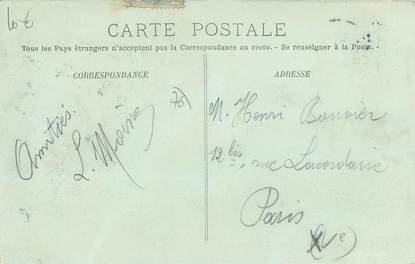 10 €
CARTE POSTALE
Tous les Pays étrangers n'acceptent pas la Correspondance au recto. - Se renseigner à la Poste.
CORRESPONDANCE
ADRESSE
Amitiés.
L.
M. Henri Bouvier
12 bis, rue Lacordaire
Paris
(Ve)